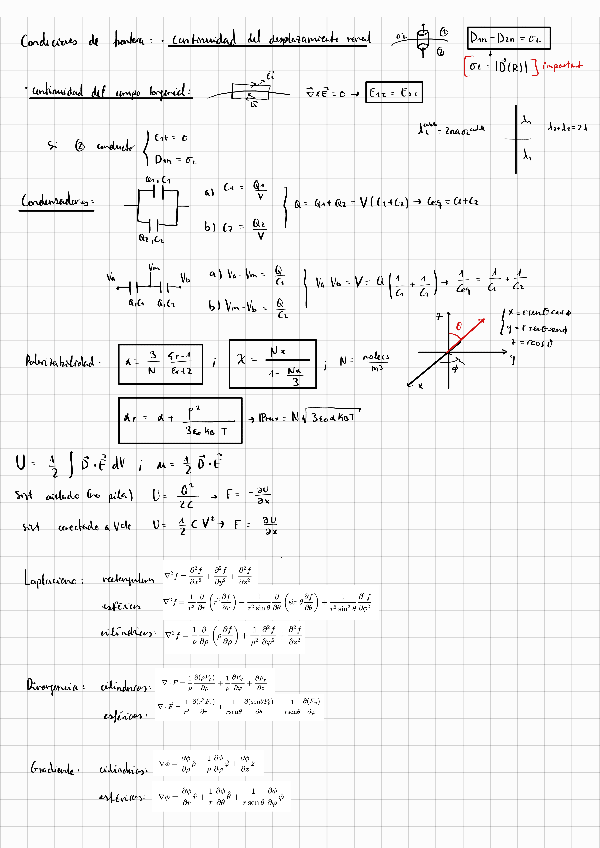 Condiciones de frontera: · continuidad del desplazamiento normal σL ① ② D1n - D2n = σL
[σL = |D(R)|] important
· continuidad del campo tangencial: ∇×E = 0 → E1t = E2t
Si ② conductor { E1t = 0
D1n = σL
λ1 λ2 λ1+λ2 = 2λ
Condensadores: Q1, C1 Q2, C2
a) C1 = Q1/V
b) C2 = Q2/V
Q = Q1 + Q2 = V(C1+C2) → Ceq = C1+C2
Va Vm Vb Q,C1 Q,C2
a) Va - Vm = Q/C1
b) Vm - Vb = Q/C2
Va - Vb = V = Q(1/C1 + 1/C2) → 1/Ceq = 1/C1 + 1/C2
z θ y φ x
x = r senθ cosφ
y = r senθ senφ
z = r cosθ
Polarizabilidad: α = 3/N (εr-1)/(εr+2) ; χ = Nα/(1 - Nα/3) ; N = molecs/m³
αT = α + p²/(3ε0 kB T) → Pmax = N√(3ε0 α kB T)
U = 1/2 ∫ D·E dV ; u = 1/2 D·E
sist aislado (no pila) U = Q²/2C → F = -∂U/∂x
sist conectado a V cte U = 1/2 C V² → F = ∂U/∂x
Laplaciano: rectangulares ∇²f = ∂²f/∂x² + ∂²f/∂y² + ∂²f/∂z²
esféricas ∇²f = 1/r² ∂/∂r (r² ∂f/∂r) + 1/(r² sin θ) ∂/∂θ (sin θ ∂f/∂θ) + 1/(r² sin² θ) ∂²f/∂φ²
cilíndricas: ∇²f = 1/ρ ∂/∂ρ (ρ ∂f/∂ρ) + 1/ρ² ∂²f/∂φ² + ∂²f/∂z²
Divergencia: cilíndricas: ∇·F = 1/ρ ∂(ρFρ)/∂ρ + 1/ρ ∂Fφ/∂φ + ∂Fz/∂z
esféricas: ∇·F = 1/r² ∂(r²Fr)/∂r + 1/(r sen θ) ∂(sen θ Fθ)/∂θ + 1/(r sen θ) ∂(Fφ)/∂φ
Gradiente: cilíndricas: ∇φ = ∂φ/∂ρ ρ̂ + 1/ρ ∂φ/∂φ φ̂ + ∂φ/∂z ẑ
esféricas: ∇φ = ∂φ/∂r r̂ + 1/r ∂φ/∂θ θ̂ + 1/(r sen θ) ∂φ/∂φ φ̂